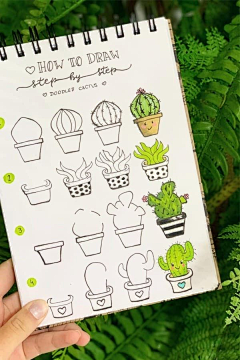 ♡ HOW TO DRAW
step by step
♡ DOODLES CACTUS
1
2
3
4